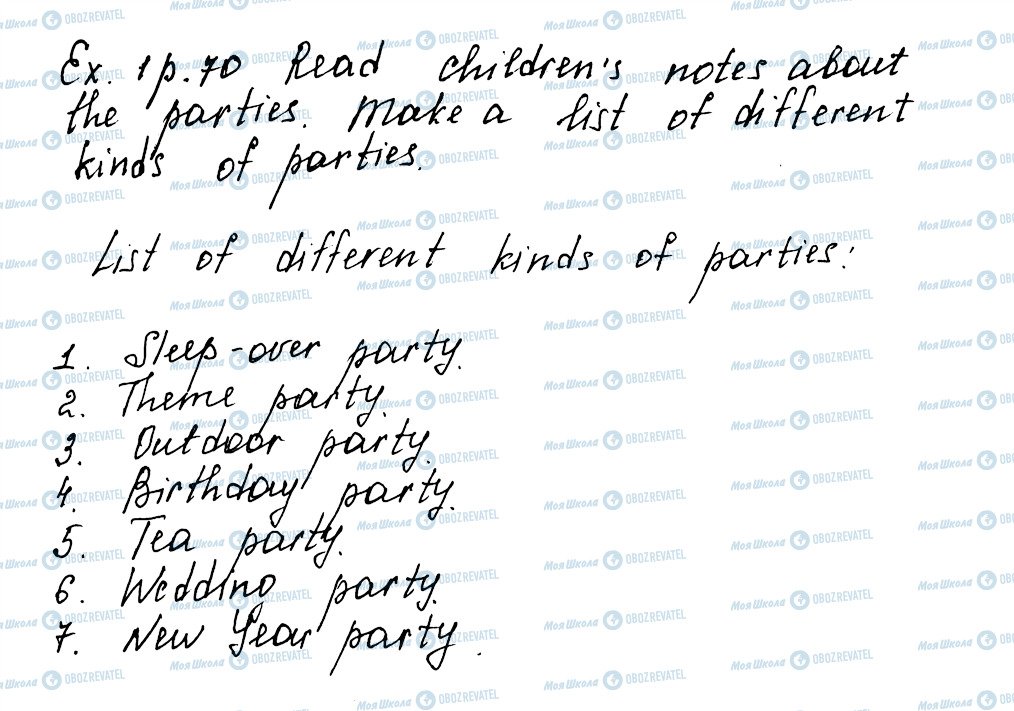 Ex. 1 p. 70 Read children's notes about
the parties. Make a list of different
kinds of parties.
List of different kinds of parties:
1. Sleep-over party.
2. Theme party.
3. Outdoor party.
4. Birthday party.
5. Tea party.
6. Wedding party.
7. New Year party.